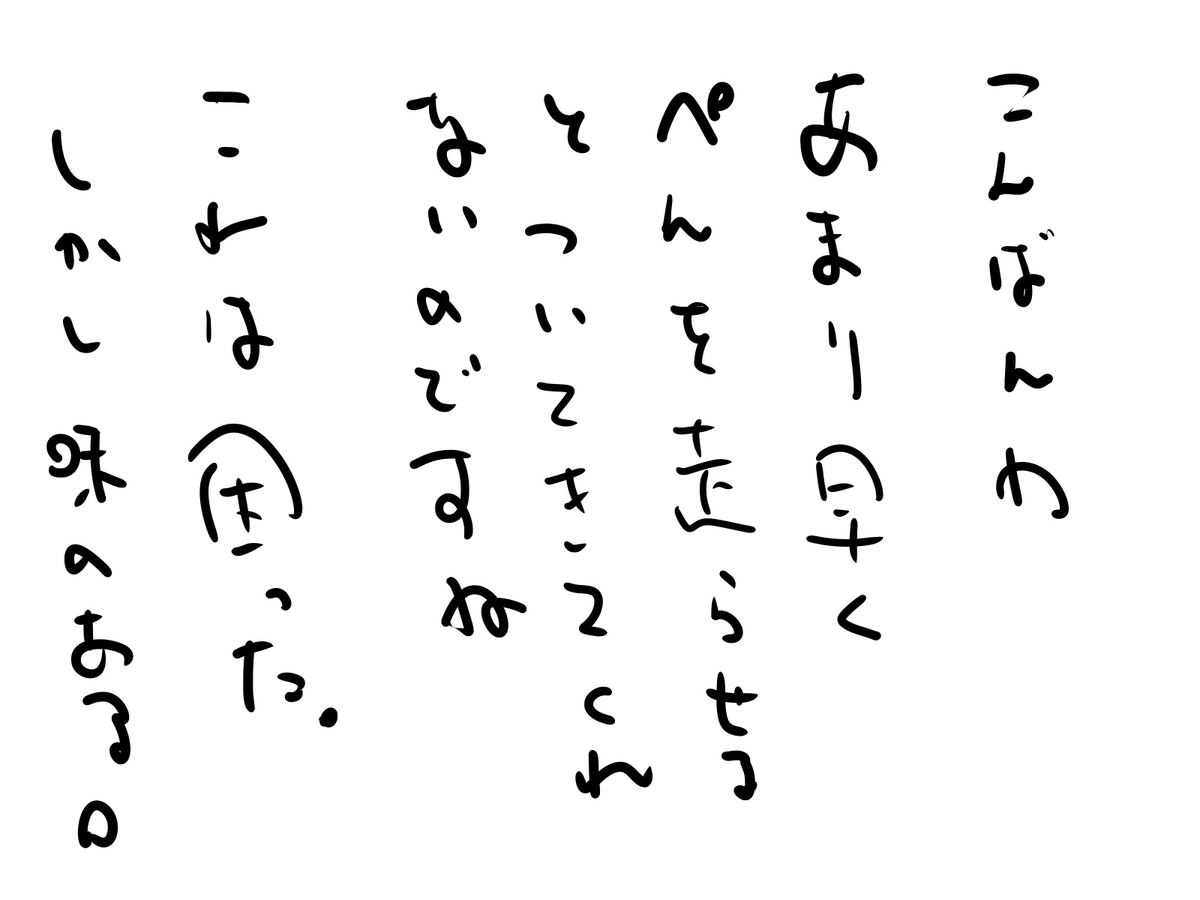 こんばんわ
あまり早く
ぺんを走らせる
とついてきてくれ
ないのですね
これは困った.
しかし味のある